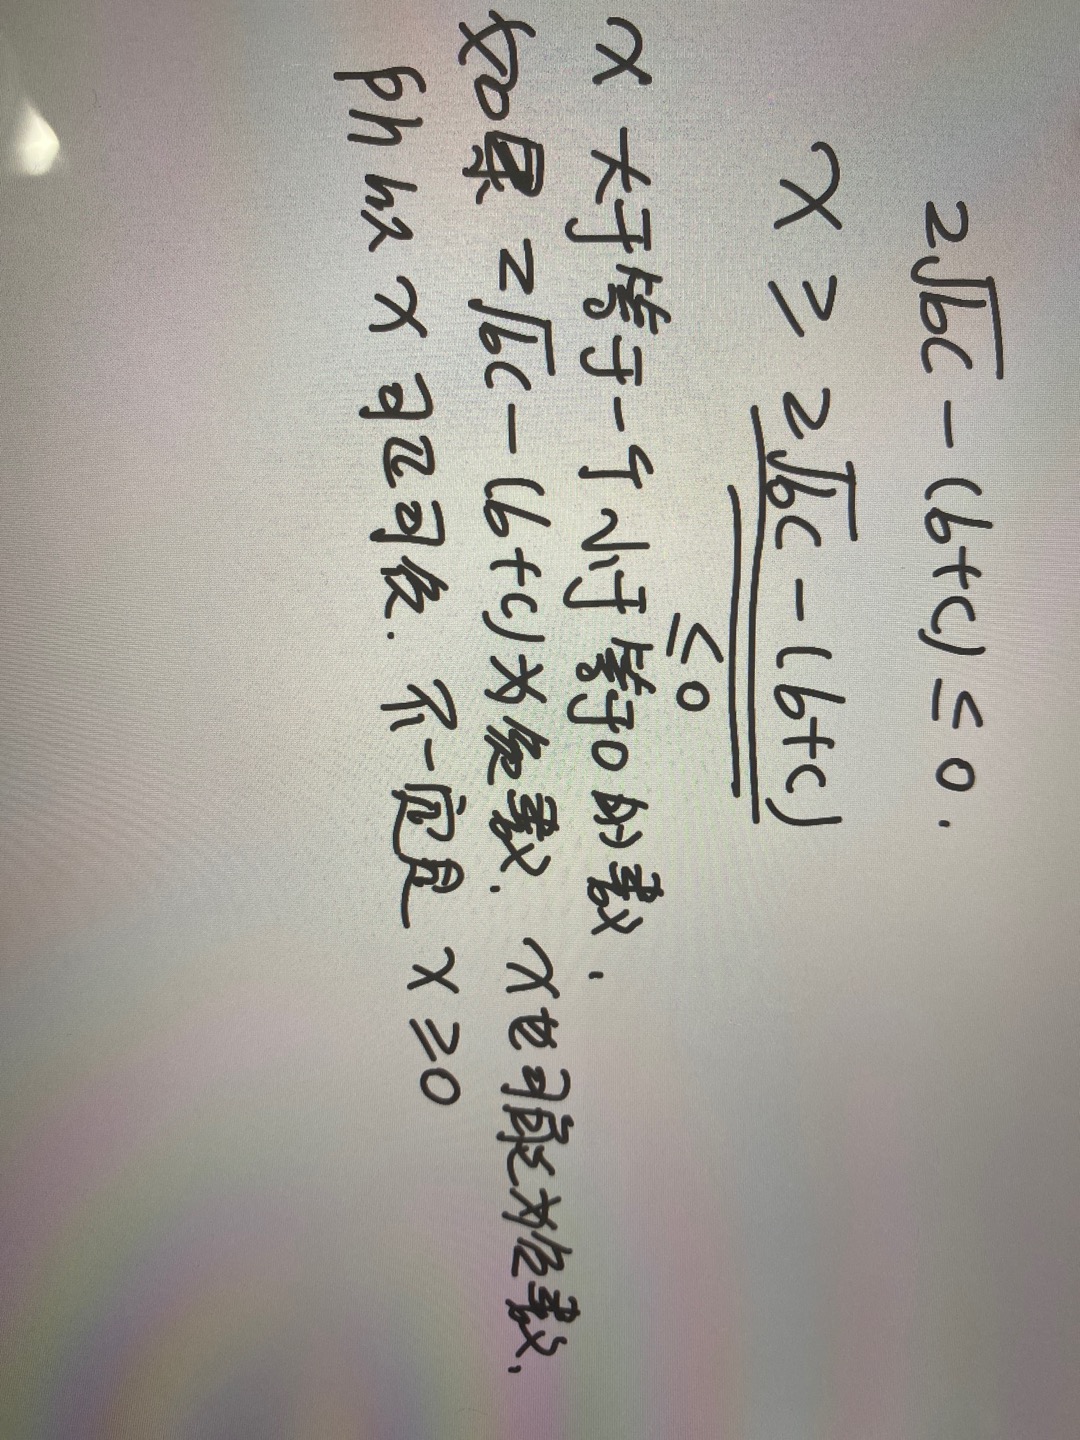 2√bc - (b+c) ≤ 0.
x ≥ 2√bc - (b+c)
≤0
x 大于等于一个小于等于0的数.
如果 2√bc - (b+c)为负数. x也可能为负数.
所以 x 可正可负. 不一定是 x ≥0